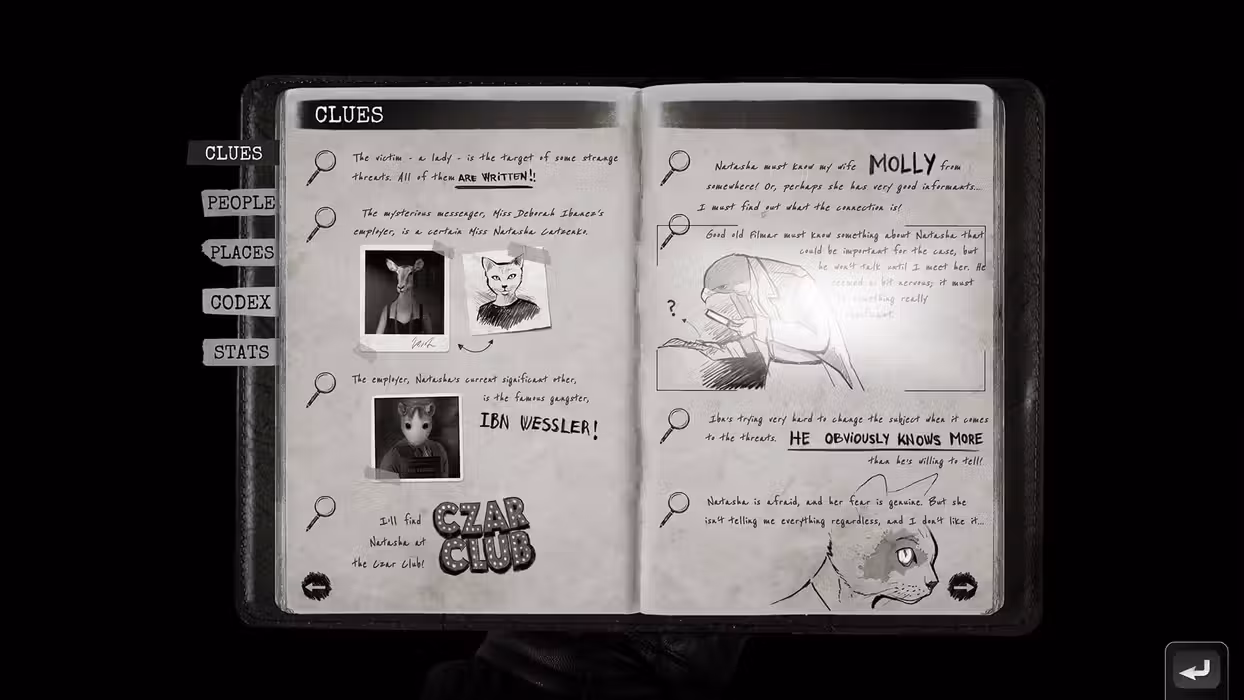 CLUES
CLUES
PEOPLE
PLACES
CODEX
STATS
The victim - a lady - is the target of some strange
threats. All of them ARE WRITTEN!!
The mysterious messenger, Miss Deborah Ibanez's
employer, is a certain Miss Natasha Catzenko.
The employer, Natasha's current significant other,
is the famous gangster,
IBN WESSLER!
I'll find
Natasha at
the Czar Club!
CZAR
CLUB
Natasha must know my wife MOLLY from
somewhere! Or, perhaps she has very good informants...
I must find out what the connection is!
Good old Pilmar must know something about Natasha that
could be important for the case, but
he won't talk until I meet her. He
seemed a bit nervous; it must
something really
?
Ibn's trying very hard to change the subject when it comes
to the threats. HE OBVIOUSLY KNOWS MORE
than he's willing to tell!
Natasha is afraid, and her fear is genuine. But she
isn't telling me everything regardless, and I don't like it...